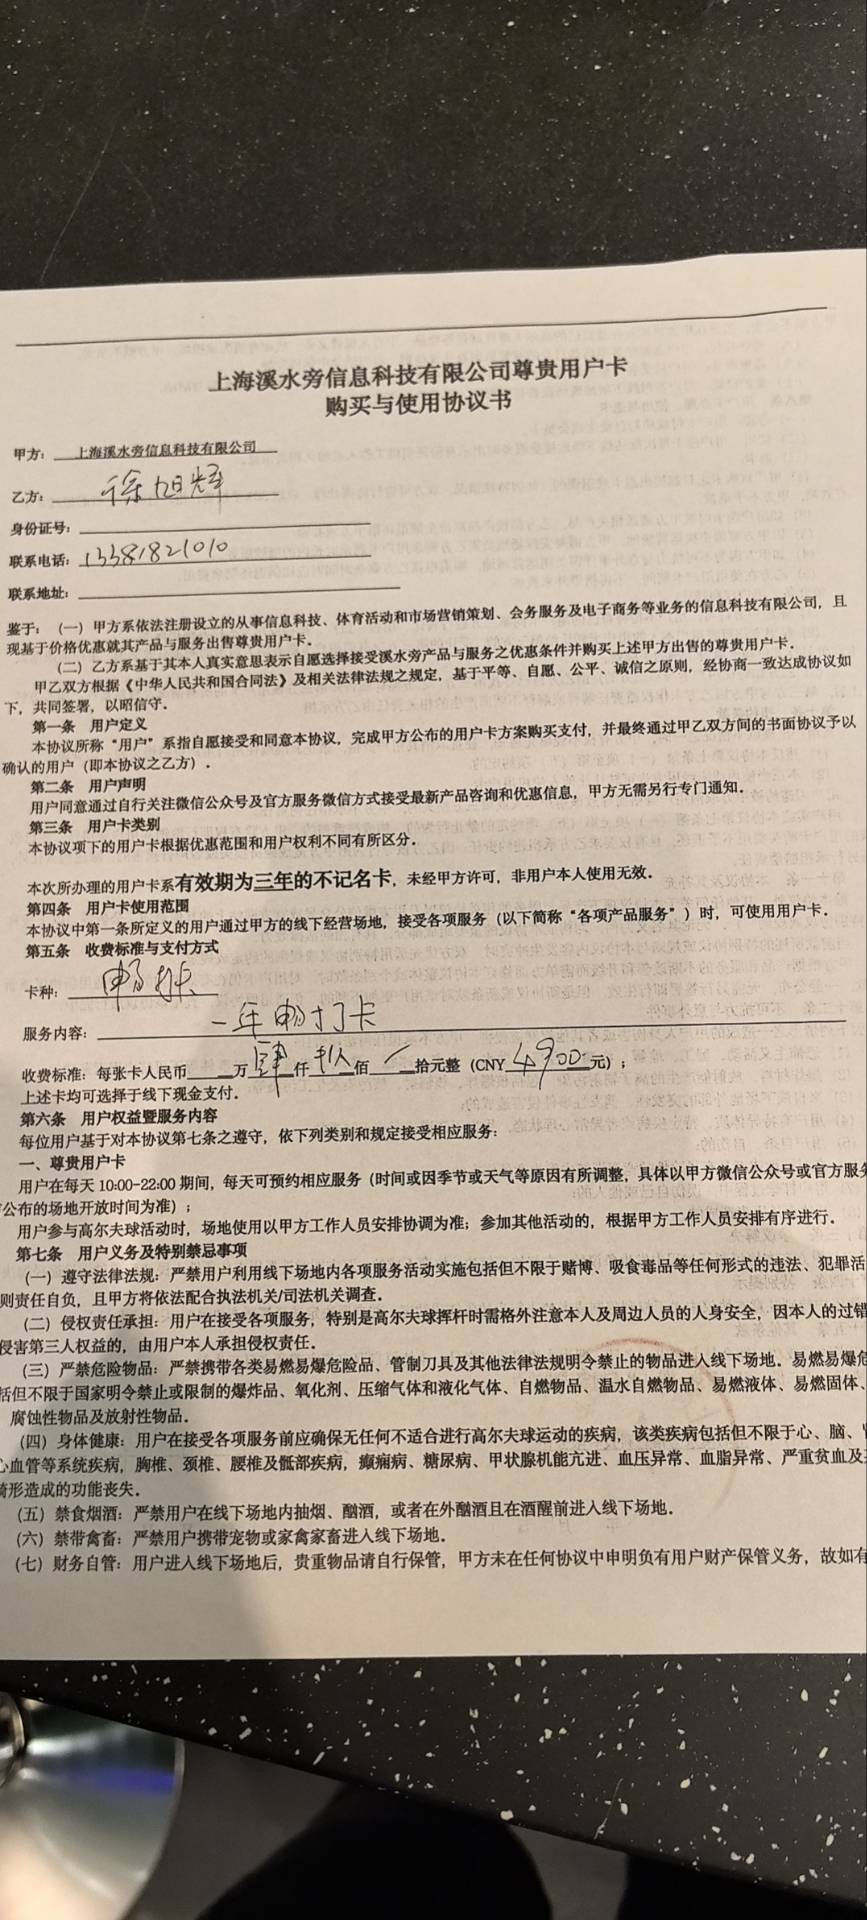 上海溪水旁信息科技有限公司尊贵用户卡
购买与使用协议书
甲方：上海溪水旁信息科技有限公司
乙方：徐旭辉
身份证号：
联系电话：13381821010
联系地址：
鉴于：（一）甲方系依法注册设立的从事信息科技、体育活动和市场营销策划、会务服务及电子商务等业务的信息科技有限公司，且
现基于价格优惠就其产品与服务出售尊贵用户卡．
（二）乙方系基于其本人真实意思表示自愿选择接受溪水旁产品与服务之优惠条件并购买上述甲方出售的尊贵用户卡．
甲乙双方根据《中华人民共和国合同法》及相关法律法规之规定，基于平等、自愿、公平、诚信之原则，经协商一致达成协议如
下，共同签署，以昭信守．
第一条 用户定义
本协议所称“用户”系指自愿接受和同意本协议，完成甲方公布的用户卡方案购买支付，并最终通过甲乙双方间的书面协议予以
确认的用户（即本协议之乙方）．
第二条 用户声明
用户同意通过自行关注微信公众号及官方服务微信方式接受最新产品咨询和优惠信息，甲方无需另行专门通知．
第三条 用户卡类别
本协议项下的用户卡根据优惠范围和用户权利不同有所区分．
本次所办理的用户卡系有效期为三年的不记名卡，未经甲方许可，非用户本人使用无效．
第四条 用户卡使用范围
本协议中第一条所定义的用户通过甲方的线下经营场地，接受各项服务（以下简称“各项产品服务”）时，可使用用户卡．
第五条 收费标准与支付方式
卡种：畅打卡
服务内容：一年畅打卡
收费标准：每张卡人民币 万 肆 仟 玖 佰 / 拾元整（CNY 4900 元）；
上述卡均可选择于线下现金支付．
第六条 用户权益暨服务内容
每位用户基于对本协议第七条之遵守，依下列类别和规定接受相应服务：
一、尊贵用户卡
用户在每天 10:00-22:00 期间，每天可预约相应服务（时间或因季节或天气等原因有所调整，具体以甲方微信公众号或官方服务
公布的场地开放时间为准）；
用户参与高尔夫球活动时，场地使用以甲方工作人员安排协调为准；参加其他活动的，根据甲方工作人员安排有序进行．
第七条 用户义务及特别禁忌事项
（一）遵守法律法规：严禁用户利用线下场地内各项服务活动实施包括但不限于赌博、吸食毒品等任何形式的违法、犯罪活
则责任自负，且甲方将依法配合执法机关/司法机关调查．
（二）侵权责任承担：用户在接受各项服务，特别是高尔夫球挥杆时需格外注意本人及周边人员的人身安全，因本人的过错
侵害第三人权益的，由用户本人承担侵权责任．
（三）严禁危险物品：严禁携带各类易燃易爆危险品、管制刀具及其他法律法规明令禁止的物品进入线下场地．易燃易爆危
括但不限于国家明令禁止或限制的爆炸品、氧化剂、压缩气体和液化气体、自燃物品、温水自燃物品、易燃液体、易燃固体、
腐蚀性物品及放射性物品．
（四）身体健康：用户在接受各项服务前应确保无任何不适合进行高尔夫球运动的疾病，该类疾病包括但不限于心、脑、
心血管等系统疾病，胸椎、颈椎、腰椎及骶部疾病，癫痫病、糖尿病、甲状腺机能亢进、血压异常、血脂异常、严重贫血及
畸形造成的功能丧失．
（五）禁食烟酒：严禁用户在线下场地内抽烟、酗酒，或者在外酗酒且在酒醒前进入线下场地．
（六）禁带禽畜：严禁用户携带宠物或家禽家畜进入线下场地．
（七）财务自管：用户进入线下场地后，贵重物品请自行保管，甲方未在任何协议中申明负有用户财产保管义务，故如有